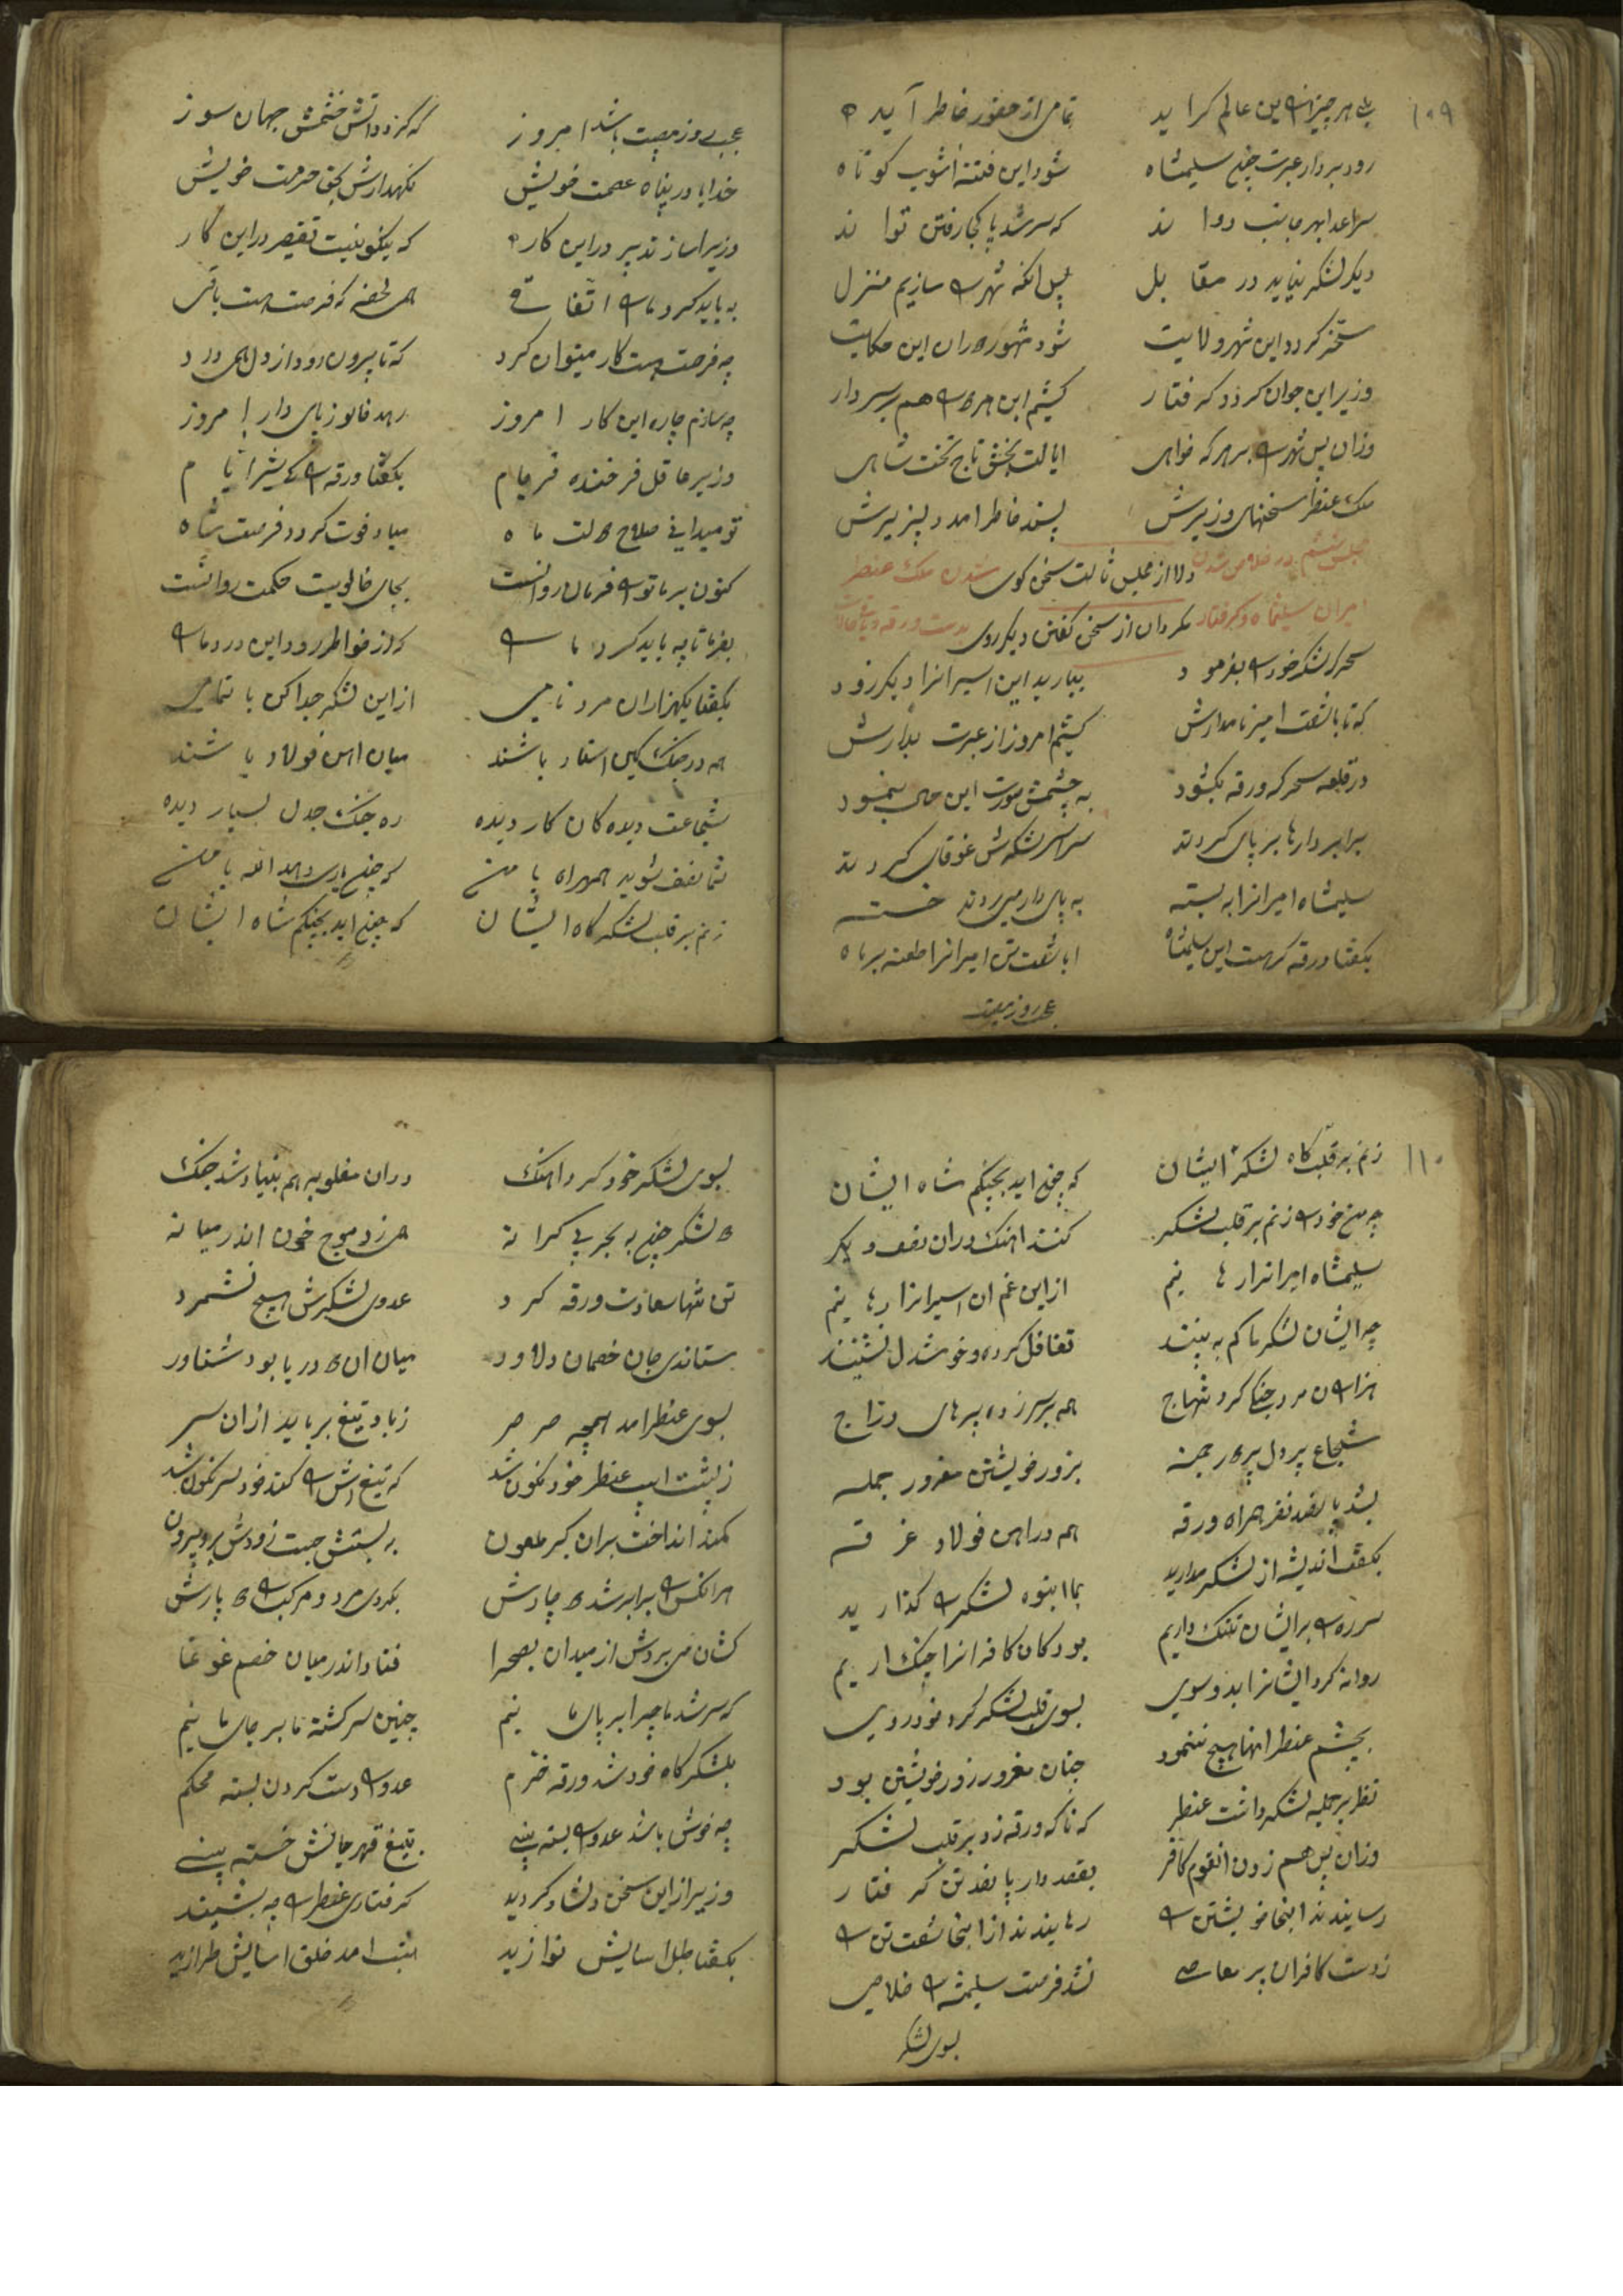 ۱۰۹
تمامی از حضور خاطر آید
رود بر دار عبرت چون سلیمشاه
شود این فتنه آشوب کوتاه
که سر شد پا کجا رفتن تواند
دیگر لشکر نیاید در مقابل
پس آنکه شهر را سازیم منزل
مسخر گردد این شهر و ولایت
شود مشهور دوران این حکایت
وزیر این جوان گردد گرفتار
کشیم این هر دو را هم بر سر دار
وزان پس شهر را بر هر که خواهی
ایالت بخش تاج تخت شاهی
ملک عنطر سخنهای وزیرش
پسند خاطر آمد دلپزیرش
دلا از مجلس ثالث سخن کوی
شدن ملک عنطر
مگردان از سخن گفتن دیگر روی
سحر لشکر خود را بفرمود
بیارید این اسیرانرا دیگر زود
که تا با شصت امیر نامدارش
کشیم امروز از عبرت بدارش
در قلعه سحر که ورقه بگشود
به چشمش صورت این حال بنمود
برابر دارها بر پای کردند
سراسر لشکرش غوغای کردند
سلیمشاه امیرانرا به بسته
به پای دار میبردند خسته
بگفتا ورقه کهست این سلیمشاه
ابا شصت تن امیرانرا
عجب روز مصیبت
عجب روز مصیبت باشد امروز
که گردد آتش خشمش جهان سوز
خدایا در پناه عصمت خویش
نگهدارش بحق حرمت خویش
وزیرا ساز تدبیر در این کار
که نیکو نیست تقصیر در این کار
به باید کرد ما را اتفاقی
همی لحضه که فرصت هست باقی
چه فرصت هست کار میتوان کرد
که تا بیرون رود از دل همی درد
چه سازم چاره این کار امروز
وزیر عاقل فرخنده فرجام
بگفتا ورقه را کای شیر ایام
تو میدانی صلاح دولت ماه
مباد فوت گردد فرصت شاه
کنون بر ما تو را فرمان روانست
بجای خالویت حکمت روانست
بفرما تا چه باید کرد ما را
کز خواطر رود این درد ما را
بگفتا یکهزاران مرد نامی
از این لشکر جدا کن با تمامی
همه در جنگ کین استاد باشند
میان آهن فولاد باشند
شجاعت دیده کان کار دیده
ره جنگ جدل بسیار دیده
شوید همراه با من
که چون یاری دهد الله با من
زنم بر قلب لشکرگاه ایشان
که چون آید بچنگم شاه ایشان
۱۱۰
زنم بر قلب گاه لشکر ایشان
که چون آید بچنگم شاه ایشان
چه من خود را زنم بر قلب لشکر
کنند آهنگ دوران صف دیگر
سلیمشاه امیرانرا رهانیم
از این غم آن اسیرانرا رهانیم
چه ایشان لشکر ما کم به بینند
تغافل کرده و خوشدل نشینند
همه بر سر زده پرهای دراج
شجاع پر دل
بزور خویشتن مغرور جمله
بشد پانصد نفر همراه ورقه
همه در آهن فولاد غرقه
بگفت اندیشه از لشکر مدارید
بما انبوه لشکر را گذارید
سر ره را بر ایشان تنگ داریم
بود کان کافرانرا چنگ آریم
روانه کرد ایشانرا بدو سوی
بسوی قلب لشکر کرد خود روی
بچشم عنطر آنها هیچ ننمود
چنان مغرور زور خویشتن بود
نظر بر جمله لشکر داشت عنطر
که ناگه ورقه زد بر قلب لشکر
وزان پس هم زدن آنقوم کافر
بقصد دار پانصد تن گرفتار
رسانیدند آنجا خویشتن را
رهانیدند از آنجا شصت تن را
ز دست کافران پر معاصی
نشد فرصت سلیمشه را خلاصی
بسوی لشکر
بسوی لشکر خود کرد آهنگ
در آن مغلوبه هم بنیاد شد جنگ
دو لشکر چون به بحر بی کرانه
همی زد موج خون اندر میانه
تن تنها سعادت ورقه کرد
عدوی لشکرش هیچ نشمرد
ستاندی جان خصمان دلاور
میان آن دو دریا بود شناور
بسوی عنطر آمد همچه صرصر
زباد تیغ برباید از آن سر
ز پشت اسب عنطر خود نگون شد
که تیغ
کمند انداخت بر آن گبر ملعون
هر آنکس را برابر شد دوچارش
بکردی مرد و مرکب را دو پارش
کشان میبردش از میدان بصحرا
فتاد اندر میان خصم غوغا
که سر شد ما چرا بر پای مانیم
چنین سرگشته ما بر جای مانیم
بلشکرگاه خود شد ورقه خرم
عدو را دست گردن بسته محکم
چه خوش باشد عدو را بسته بینی
بتیغ قهر جانش خسته بینی
وزیر از این سخن دلشاد گردید
گرفتاری عنطر را چه بشنید
بگفتا طبل آسایش نوازید
شب آمد خلق آسایش طرازید